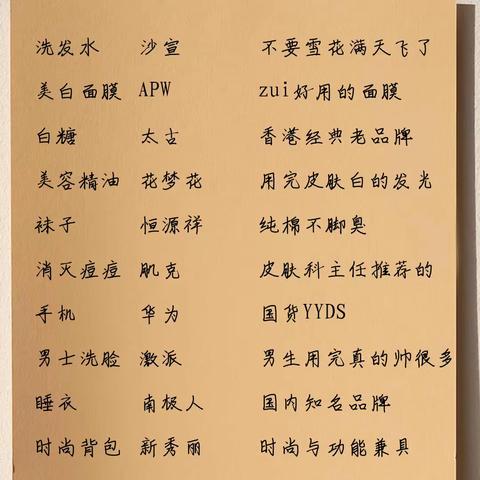 洗发水 沙宣 不要雪花满天飞了
美白面膜 APW zui好用的面膜
白糖 太古 香港经典老品牌
美容精油 花梦花 用完皮肤白的发光
袜子 恒源祥 纯棉不脚臭
消灭痘痘 肌克 皮肤科主任推荐的
手机 华为 国货YYDS
男士洗脸 激派 男生用完真的帅很多
睡衣 南极人 国内知名品牌
时尚背包 新秀丽 时尚与功能兼具